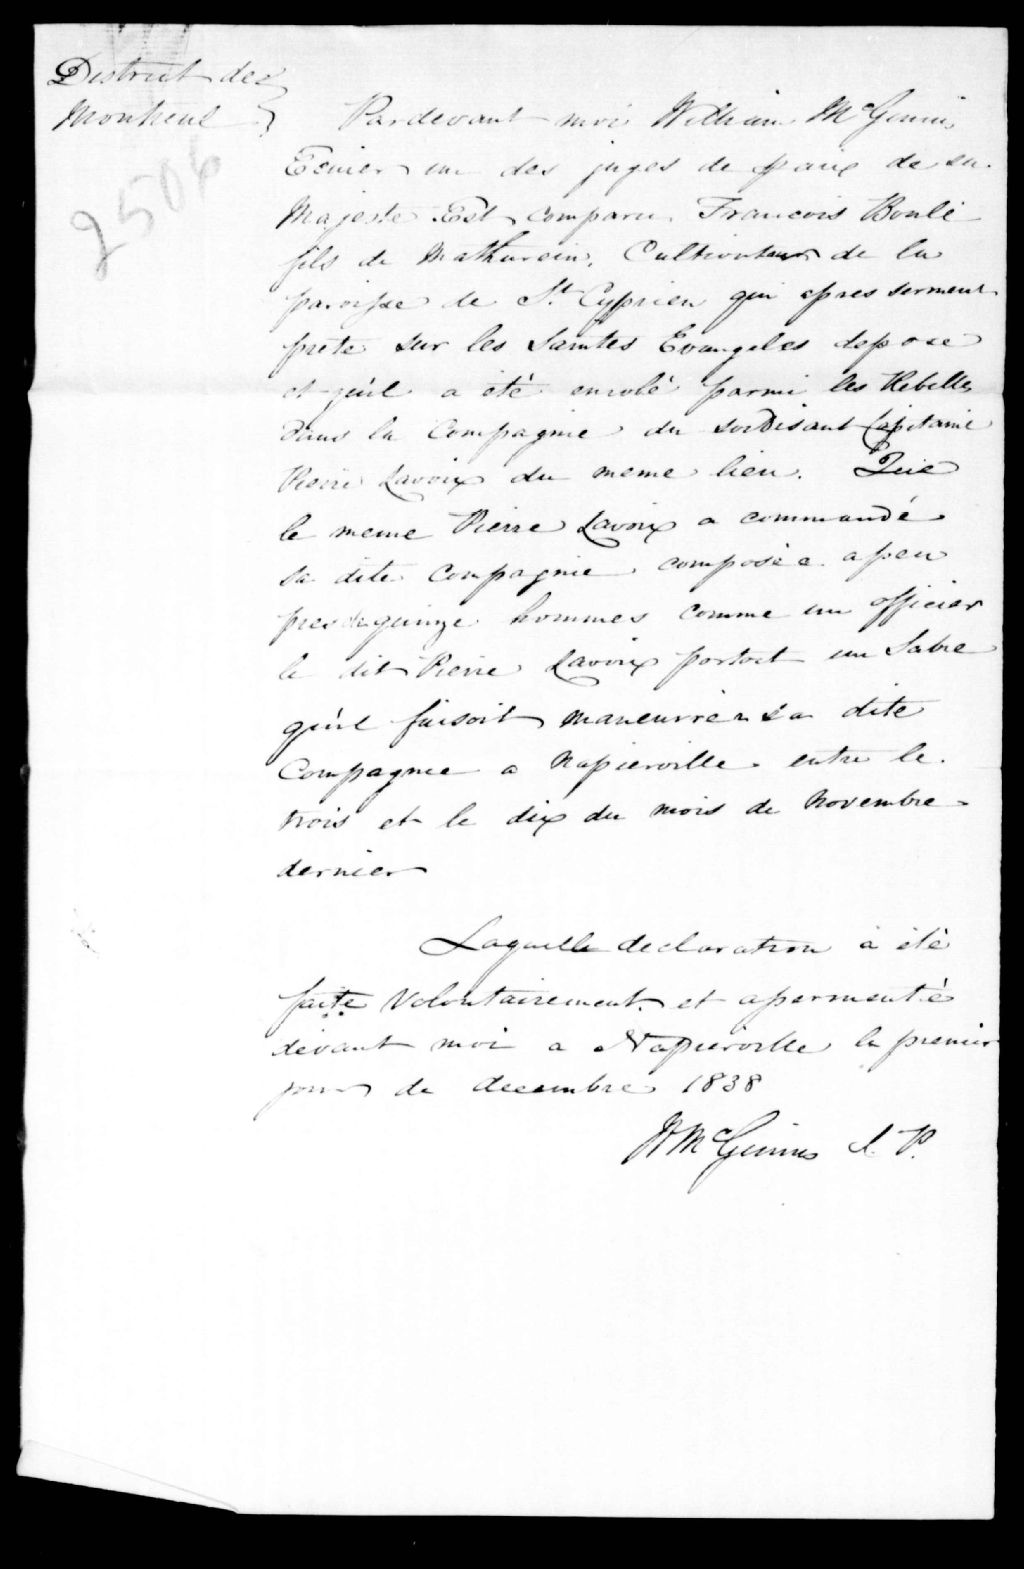 District de
Montreal }
2506
Pardevant moi William McGinnis
Ecuier un des juges de paix de sa
Majesté Est comparu Francois Boulé
fils de Mathurein, Cultivateur de la
paroisse de St Cyprien qui apres serment
prete sur les Saintes Evangeles depose
et qu'il a été enrolé parmi les Rebelles
dans la Compagnie du soitdisant Capitaine
Pierre Lavoix du meme lieu. Que
le meme Pierre Lavoix a commandé
sa dite Compagnie composée apeu
pres de quinze hommes comme un officier
le dit Pierre Lavoix portoit un Sabre
qu'il faisoit maneuvrer sa dite
Compagnee a Napierville entre le
trois et le dix du mois de Novembre
dernier
Laquelle declaration à été
faite Volontairement et assermentée
devant moi a Napierville le premier
jour de decembre 1838
W McGinnis J. P.